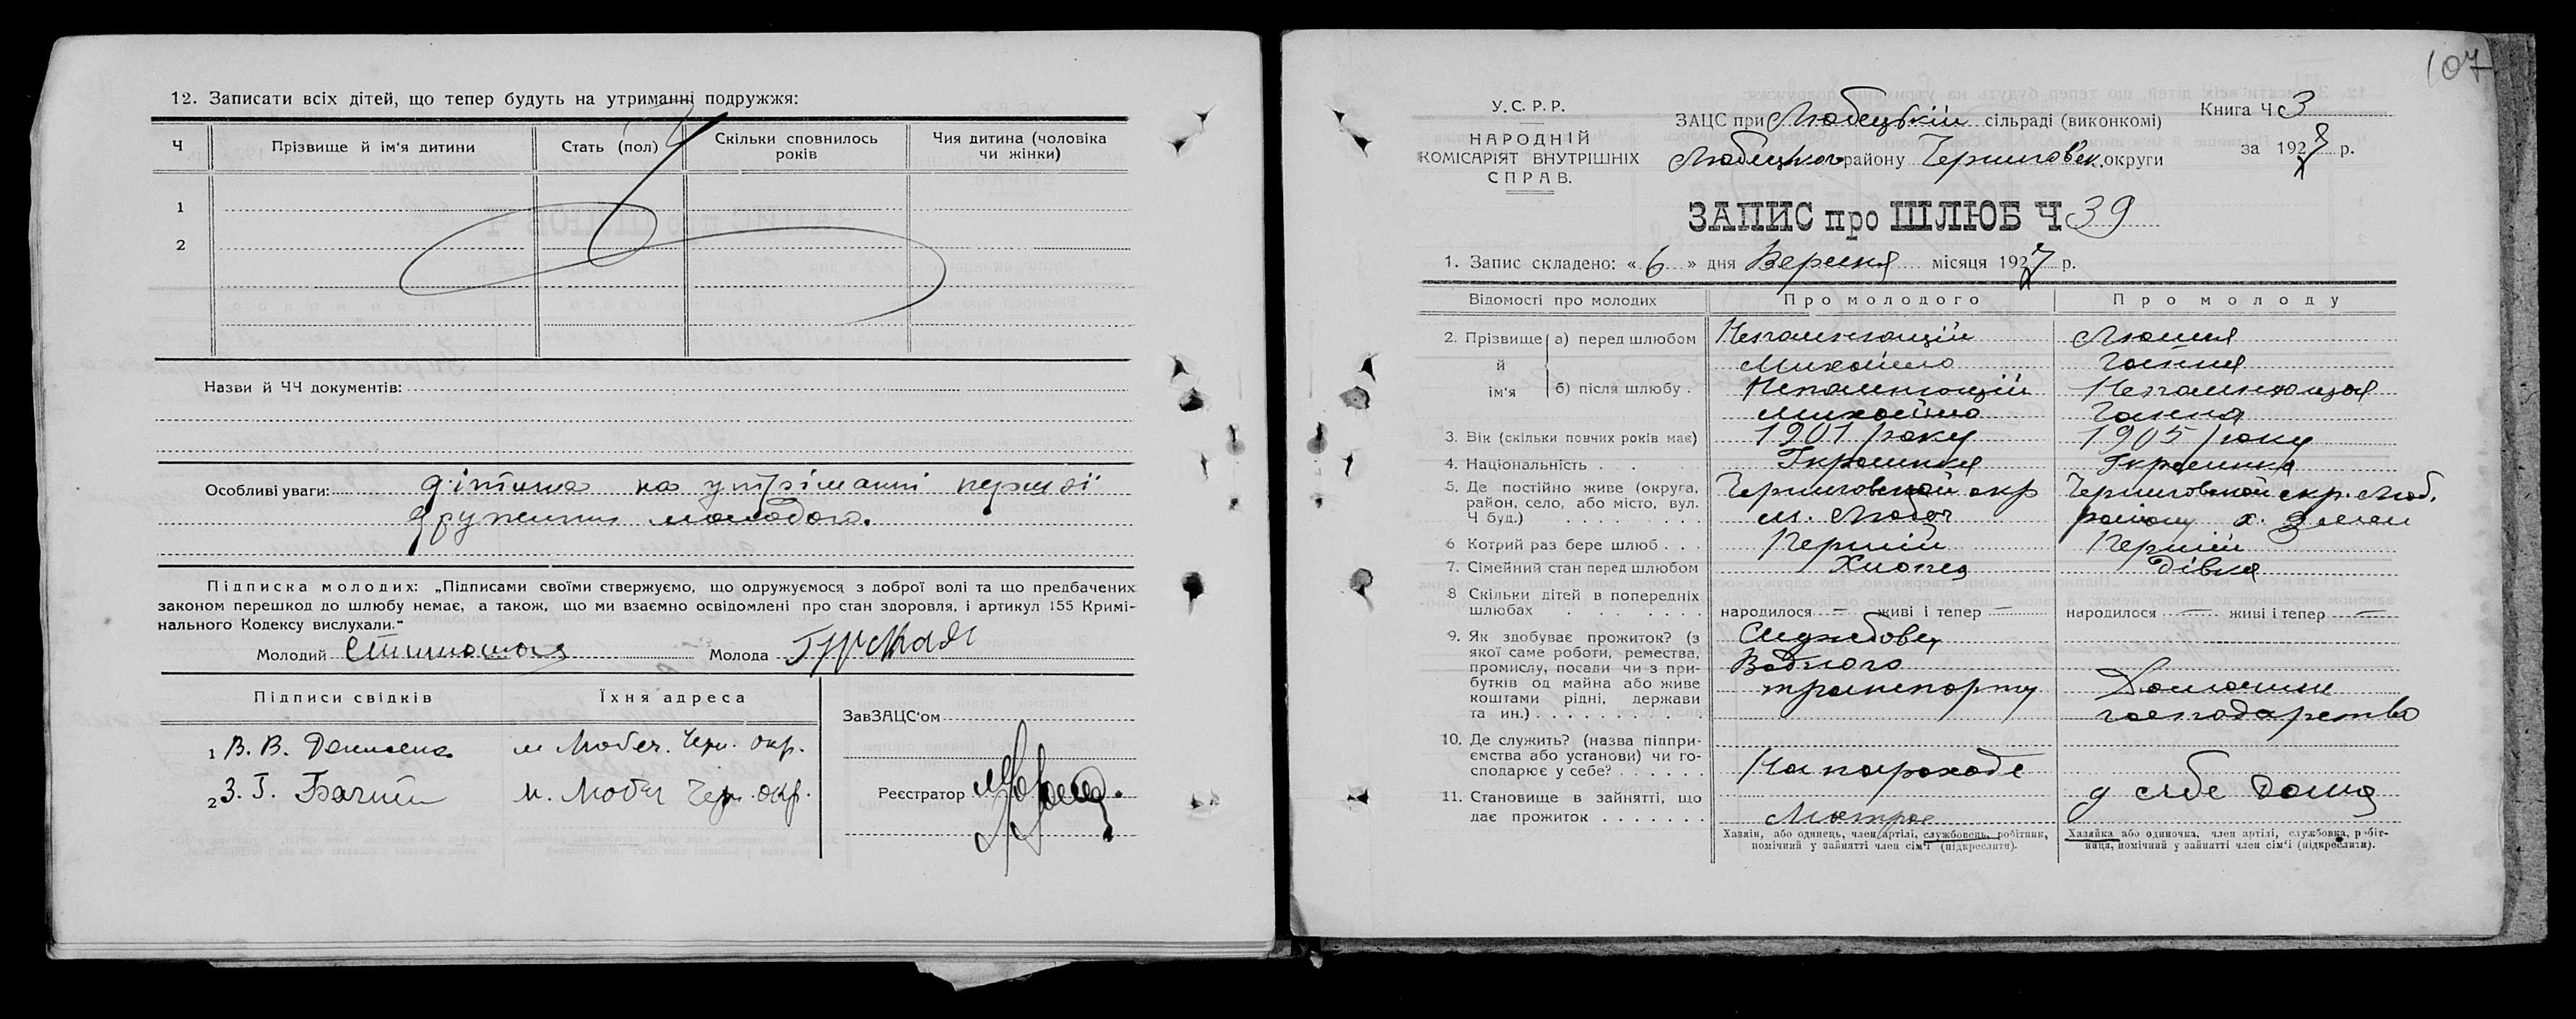 12. Записати всіх дітей, що тепер будуть на утриманні подружжя:
Ч Прізвище й ім'я дитини Стать (пол) Скільки сповнилось років Чия дитина (чоловіка чи жінки)
1
2
Назви й ЧЧ документів:
Особливі уваги: дітина на утріманні першої
дружини молодого.
Підписка молодих: „Підписами своїми ствержуємо, що одружуємося з доброї волі та що предбачених
законом перешкод до шлюбу немає, а також, що ми взаємно освідомлені про стан здоровля, і артикул 155 Кримі-
нального Кодексу вислухали.“
Молодий Молода
Підписи свідків Їхня адреса
ЗавЗАЦС'ом
1 В. В. м Любеч. Черн. окр.
Реєстратор
2 З. Г. м. Любеч Черн. окр.
107
У.С.Р.Р.
НАРОДНІЙ
КОМІСАРІЯТ ВНУТРІШНІХ
СПРАВ.
ЗАЦС при Любецькій сільраді (виконкомі)
Любецького району Чернигов'ськ. округи
Книга Ч 3
за 1927 р.
ЗАПИС про ШЛЮБ Ч 39
1. Запис складено: « 6 » дня Вересня місяця 1927 р.
Відомості про молодих Про молодого Про молоду
2. Прізвище й ім'я
а) перед шлюбом Непомнющий
Михайло Ганна
б) після шлюбу . Непомнющий Непомнющая
Михайло Ганна
3. Вік (скільки повних років має) 1901 року 1905 року
4. Національність . . Украинка
5. Де постійно живе (округа,
район, село, або місто, вул.
Ч буд.) . . . . . . . .
Черниговской окр
м. Любеч
Черниговской окр. Люб.
району х.
6 Котрий раз бере шлюб . . . Перший Перший
7. Сімейний стан перед шлюбом Хлопец Дівка
8 Скільки дітей в попередніх
шлюбах . . . . . . . народилося — живі і тепер — народилося — живі і тепер —
9. Як здобуває прожиток? (з
якої саме роботи, ремества,
промислу, посади чи з при-
бутків од майна або живе
коштами рідні, держави
та ин.) . . . . . . . . . .
Службовец
Водного
транспорту
Домашне
господарство
10. Де служить? (назва підпри-
ємства або установи) чи го-
сподарює у себе? . . . . . .
На пароходе
у себе дома
11. Становище в зайнятті, що
дає прожиток . . . . . . .
Матрос
Хазяїн, або одинець, член артілі, службовець, робітник,
помічний у зайнятті член сім'ї (підкреслити).
Хазяйка або одиночка, член артілі, службовка, робіт-
ниця, помічний у зайнятті член сім'ї (підкреслити).